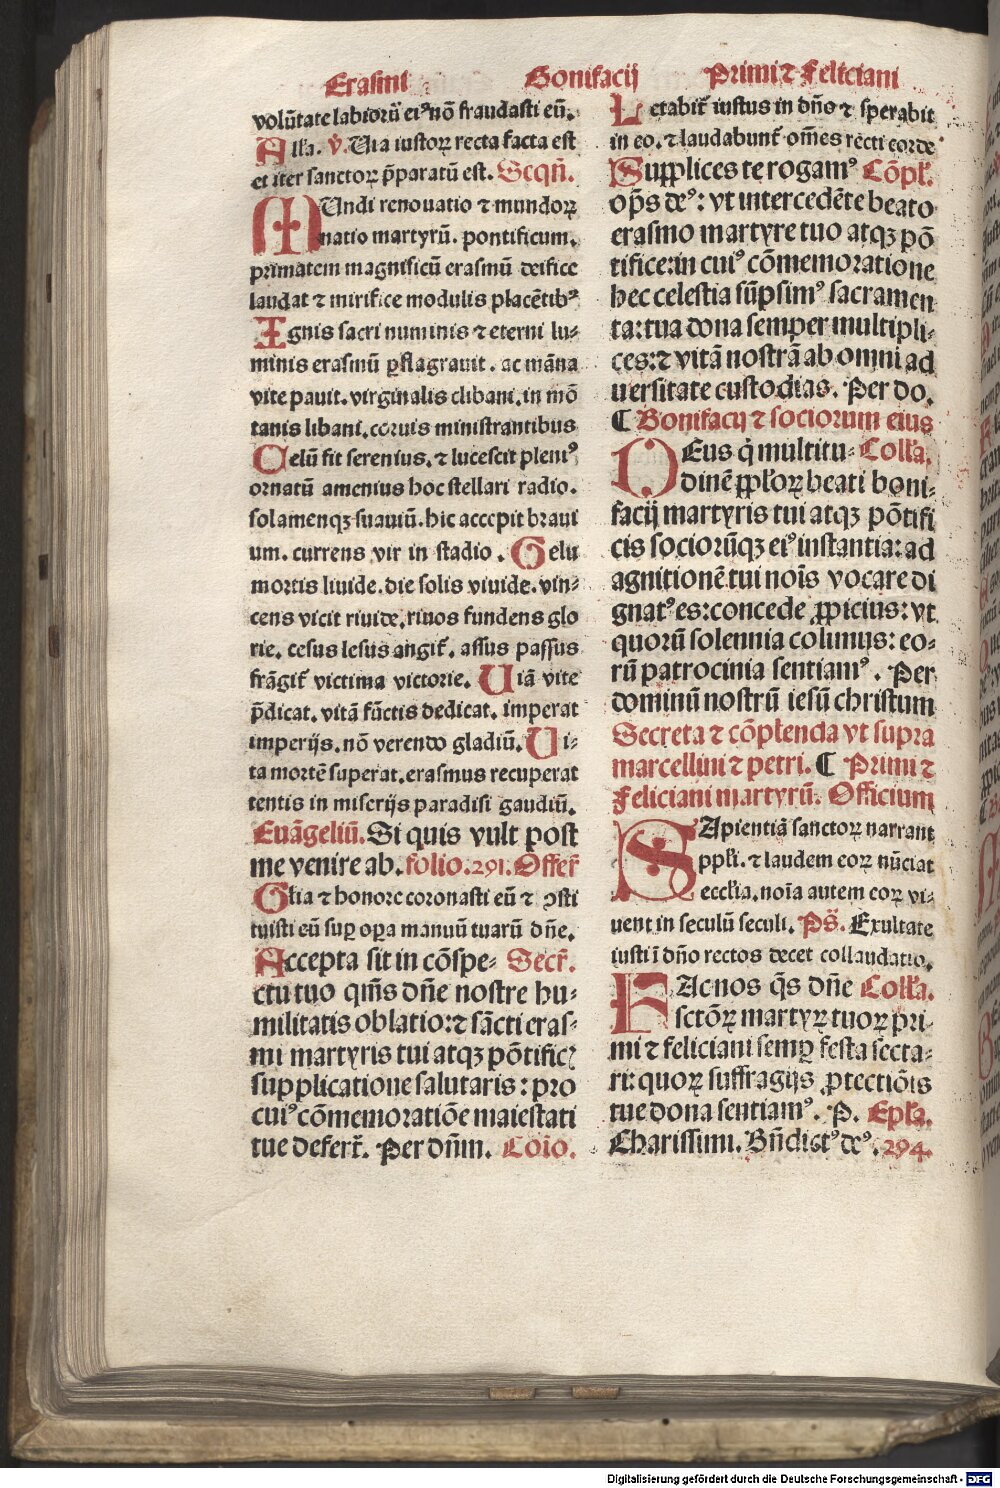 Erasmi Bonifacij Primi ⁊ Feliciani
volũtate labiorũ eiꝰ nõ fraudasti eũ.
Alľa. ℣. Uia iustoꝝ recta facta est
et iter sanctoꝝ p̄paratũ est. Seqñ.
MUndi renouatio ⁊ mundoꝝ
natio martyrũ. pontificum.
primatem magnificũ erasmũ deifice
laudat ⁊ mirifice modulis placẽtibꝰ
Ignis sacri numinis ⁊ eterni lu-
minis erasmũ ꝑflagrauit. ac mãna
vite pauit. virginalis clibani. in mõ
tanis libani. coruis ministrantibus
Celũ fit serenius. ⁊ lucescit pleniꝰ
ornatũ amenius hoc stellari radio.
solamenqꝫ suauiũ. hic accepit braui
um. currens vir in stadio. Gelu
mortis liuide. die solis viuide. vin-
cens vicit riuide. riuos fundens glo
rie. cesus lesus angit̃. assus passus
frãgit̃ victima victorie. Uiã vite
p̄dicat. vitã fũctis dedicat. imperat
imperijs. nõ verendo gladiũ. Ui-
ta mortẽ superat. erasmus recuperat
tentis in miserijs paradisi gaudiũ.
Euãgeliũ. Si quis vult post
me venire ab. folio. 291. Offer̃
Glĩa ⁊ honore coronasti eũ ⁊ ꝯsti
tuisti eũ suꝑ oꝑa manuũ tuarũ dñe.
Accepta sit in cõspe- Secr̃.
ctu tuo q̃ms dñe nostre hu-
militatis oblatio: ⁊ sãcti eras-
mi martyris tui atqꝫ põtific̃
supplicatione salutaris: pro
cuiꝰ cõmemoratiõe maiestati
tue defert̃. Per dñm. Cõio.
Letabit̃ iustus in dño ⁊ sperabit
in eo. ⁊ laudabunt̃ om̃es recti corde
Supplices te rogamꝰ Cõpľ.
op̃s deꝰ: vt intercedẽte beato
erasmo martyre tuo atqꝫ põ
tifice: in cuiꝰ cõmemoratione
hec celestia sũpsimꝰ sacramen
ta: tua dona semper multipli-
ces: ⁊ vitã nostrã ab omni ad
uersitate custodias. Per do.
¶ Bonifacij ⁊ sociorum eius
DEus q̇ multitu- Colľa.
dinẽ ꝓpľoꝝ beati boni-
facij martyris tui atqꝫ põtifi
cis sociorũqꝫ eiꝰ instantia: ad
agnitionẽ tui noĩs vocare di
gnatꝰ es: concede ꝓpicius: vt
quorũ solennia colimus: eo-
rũ patrocinia sentiamꝰ. Per
dominũ nostrũ iesũ christum
Secreta ⁊ cõplenda vt supra
marcellini ⁊ petri. ¶ Primi ⁊
Feliciani martyrũ. Officium
SApientiã sanctoꝝ narrant
ppľi. ⁊ laudem eoꝝ nũciat
ecclĩa. noĩa autem eoꝝ vi-
uent in seculũ seculi. Ps̃. Exultate
iusti ĩ dño rectos decet collaudatio.
FAc nos q̃s dñe Colľa.
sctõꝝ martyꝝ tuoꝝ pri-
mi ⁊ feliciani semꝑ festa secta-
ri: quoꝝ suffragijs ꝓtectiõis
tue dona sentiamꝰ. P. Epľa.
Charissimi. Bñdictꝰ deꝰ. 294.
Digitalisierung gefördert durch die Deutsche Forschungsgemeinschaft - DFG